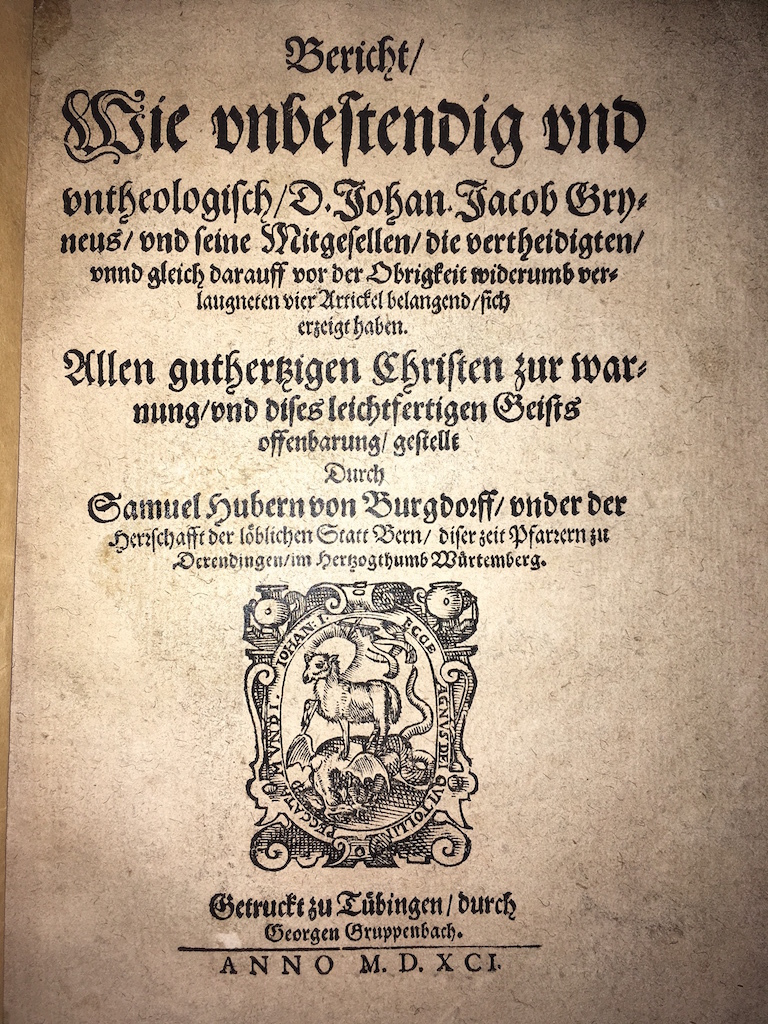 Bericht/
Wie vnbeſtendig vnd
vntheologiſch/D. Johan. Jacob Gry⸗
neus/ vnd ſeine Mitgeſellen/ die vertheidigten/
vnnd gleich darauff vor der Obrigkeit widerumb ver⸗
laugneten vier Artickel belangend/ſich
erzeigt haben.
Allen guthertzigen Chriſten zur war⸗
nung/vnd diſes leichtfertigen Geiſts
offenbarung/ geſtellt
Durch
Samuel Hubern von Burgdorff/ vnder der
Herrſchafft der löblichen Statt Bern/ diſer zeit Pfarrern zu
Derendingen/im Hertzogthumb Würtemberg.
ECCE AGNVS DEI QVI TOLLIT PECCATA MVNDI. IOHAN: I.
Getruckt zu Tübingen/ durch
Georgen Gruppenbach.
ANNO M. D. XCI.